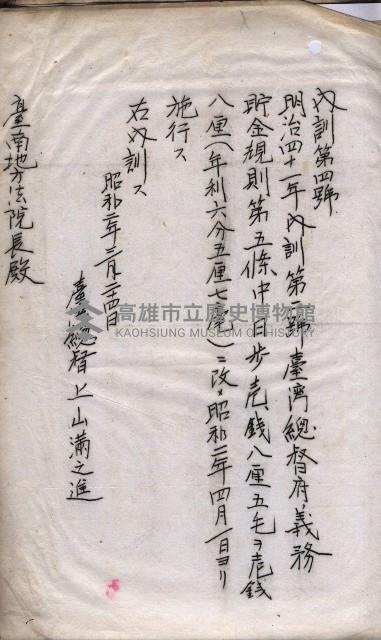 內訓第四號
明治四十一年內訓第一號臺灣總督府義務
貯金規則第五條中日步壱錢八厘五毛ヲ壱錢
八厘(年利六分五厘七毛)ニ改メ昭和二年四月一日ヨリ
施行ス
右內訓ス
昭和二年三月二四日
臺灣總督上山滿之進
臺南地方法院長殿
高雄市立歷史博物館
KAOHSIUNG MUSEUM OF HISTORY